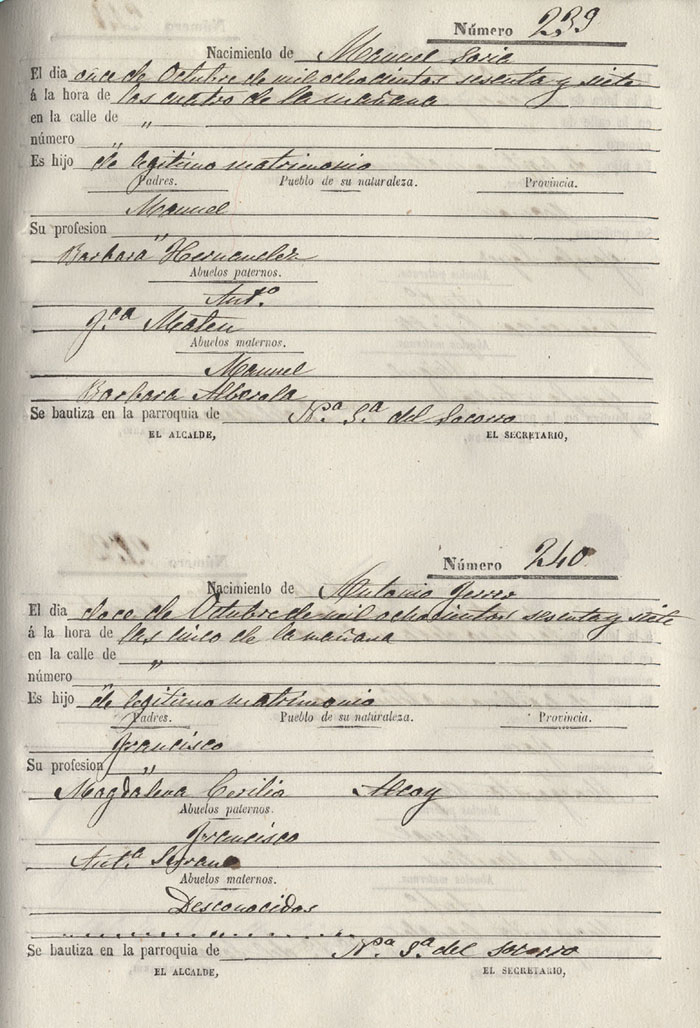 Número 239
Nacimiento de Manuel Soria
El dia once de Octubre de mil ochocientos sesenta y siete
á la hora de las cuatro de la mañana
en la calle de "
número "
Es hijo de legitimo matrimonio
Padres. Pueblo de su naturaleza. Provincia.
Manuel
Su profesion "
Barbara Hernandez
Abuelos paternos.
Ant.º
J.ca Mateu
Abuelos maternos.
Manuel
Barbara Alberola
Se bautiza en la parroquia de N.ª S.ª del Socorro
EL ALCALDE, EL SECRETARIO,
Número 240
Nacimiento de Antonio
El dia doce de Octubre de mil ochocientos sesenta y siete
á la hora de las cinco de la mañana
en la calle de "
número "
Es hijo de legitimo matrimonio
Padres. Pueblo de su naturaleza. Provincia.
Francisco
Su profesion "
Magdalena Cerilio Alcoy
Abuelos paternos.
Francisco
Ant.ª Serrano
Abuelos maternos.
Desconocidos
Se bautiza en la parroquia de N.ª S.ª del Socorro
EL ALCALDE, EL SECRETARIO,